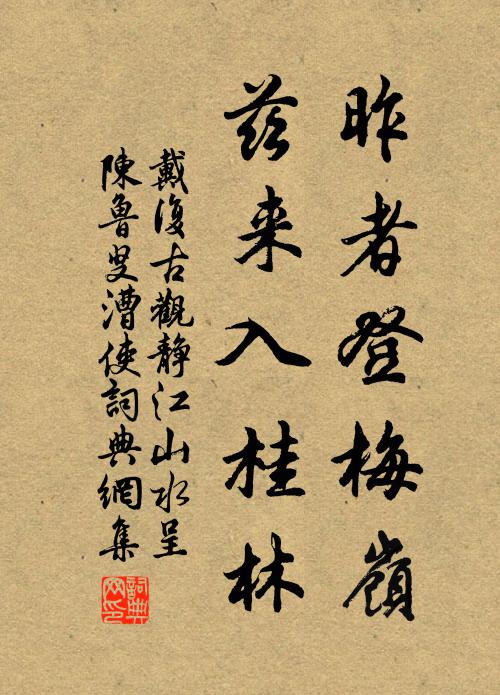 昨者登梅嶺
茲来入桂林
戴復古觀靜江山水呈
陳魯叟漕使詞典網集
詞典网印